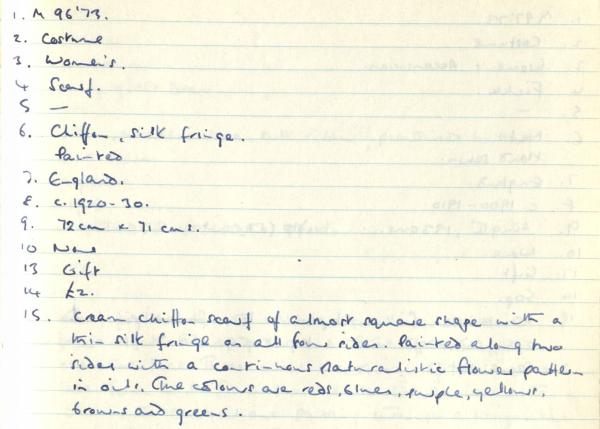 1. M 96'73.
2. Costume
3. Women's.
4 Scarf.
5 —
6. Chiffon, silk fringe.
Painted
7. England.
8. c. 1920-30.
9. 72cm x 71 cms.
10 None
13 Gift
14 £2.
15. Cream chiffon scarf of almost square shape with a
thin silk fringe on all four sides. Painted along two
sides with a continuous naturalistic flower pattern
in oils. The colours are reds, blues, purple, yellows,
browns and greens.